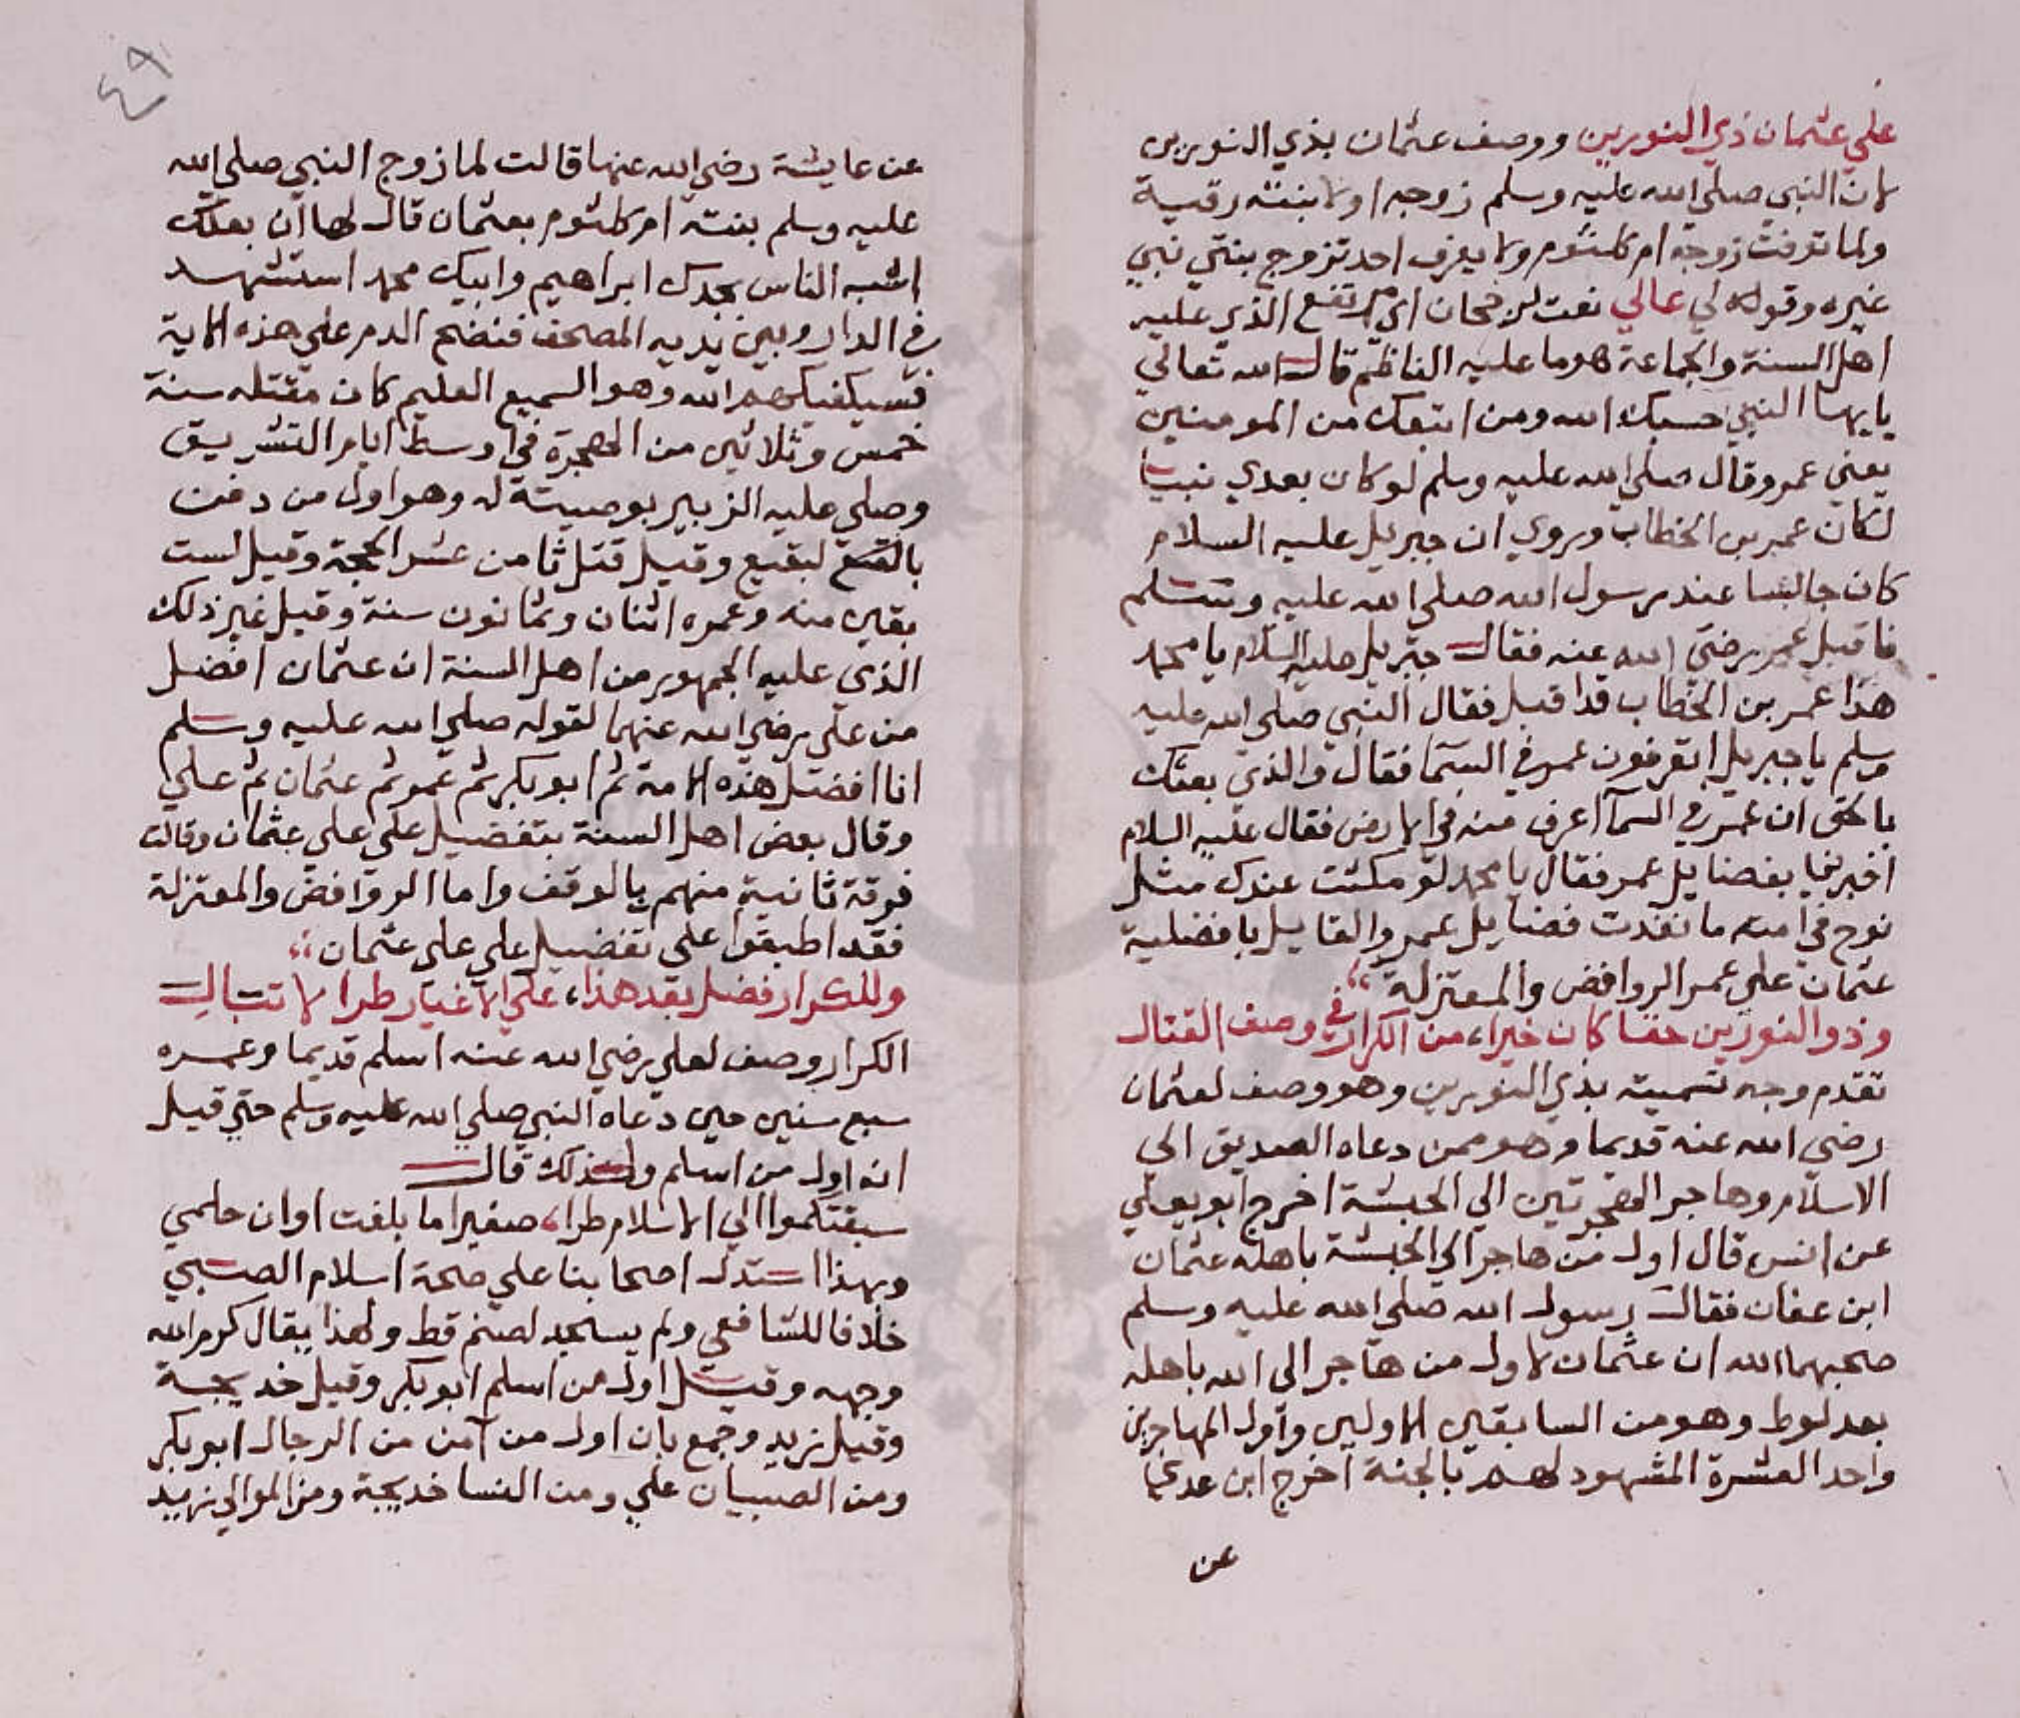 علي عثمان ذي النورين ووصف عثمان بذي النورين
لان النبي صلي الله عليه وسلم زوجه اولا بنته رقية
ولما توفت زوجه ام كلثوم ولا يعرف احد تزوج بنتي نبي
غيره وقوله لي عالي نعت لرجحان اي مرتفع الذي عليه
اهل السنة والجماعة هو ما عليه الناظم قال الله تعالي
يايها النبي حسبك الله ومن اتبعك من المومنين
يعني عمر وقال صلي الله عليه وسلم لو كان بعدي نبيا
لكان عمر بن الخطاب وروي ان جبريل عليه السلام
كان جالسا عند رسول الله صلي الله عليه وسلم
فاقبل عمر رضي الله عنه فقال جبريل عليه السلام يا محمد
هذا عمر بن الخطاب قد اقبل فقال النبي صلي الله عليه
وسلم يا جبريل اتعرفون عمر في السما فقال والذي بعثك
بالحق ان عمر في السمآ اعرف منه في الارض فقال عليه السلام
اخبرنيا بفضايل عمر فقال يا محمد لو مكثت عندك مثل
نوح في امته ما نفدت فضايل عمر والقايل بافضلية
عثمان علي عمر الروافض والمعتزلة
وذو النورين حقا كان خيرا، من الكرار في وصف القتال
تقدم وجه تسميته بذي النورين وهو وصف لعثمان
رضي الله عنه قديما وهو ممن دعاه الصديق الي
الاسلام وهاجر الهجرتين الي الحبشة اخرج ابو يعلي
عن انس قال اول من هاجر الي الحبشة باهله عثمان
ابن عفان فقال رسول الله صلي الله عليه وسلم
صحبهما الله ان عثمان لاول من هاجر الي الله باهله
بعد لوط وهو من السابقين الاولين واول المهاجرين
واحد العشرة المشهود لهم بالجنة اخرج ابن عدي
عن
٤٩
عن عايشة رضي الله عنها قالت لما زوج النبي صلي الله
عليه وسلم بنته ام كلثوم بعثمان قال لها ان بعلك
اشبه الناس بجدك ابراهيم وابيك محمد استشهد
في الدار وبين يديه المصحف فنضح الدم علي هذه الاية
فسيكفيكهم الله وهو السميع العليم كان مقتله سنة
خمس وثلاثين من الهجرة في اوسط ايام التشريق
وصلي عليه الزبير بوصيته له وهو اول من دفن
لبقيع وقيل قتل ثامن عشر الحجة وقيل لست
بقين منه وعمره اثنان وثمانون سنة وقيل غير ذلك
الذي عليه الجمهور من اهل السنة ان عثمان افضل
من علي رضي الله عنهما لقوله صلي الله عليه وسلم
انا افضل هذه الامة ثم ابو بكر ثم عمر ثم عثمان ثم علي
وقال بعض اهل السنة بتفضيل علي علي عثمان وقالت
فرقة ثانية منهم بالوقف واما الروافض والمعتزلة
فقد اطبقوا علي تفضيل علي علي عثمان
وللكرار فضل بعد هذا، علي الاغيار طرا لا تبال
الكرار وصف لعلي رضي الله عنه اسلم قديما وعمره
سبع سنين حين دعاه النبي صلي الله عليه وسلم حتي قيل
انه اول من اسلم ولذلك قال
سبقتكموا الي الاسلام طرا، صغيرا ما بلغت اوان حلمي
وبهذا استدل اصحابنا علي صحة اسلام الصبي
خلافا للشافعي ولم يسجد لصنم قط ولهذا يقال كرم الله
وجهه وقيل اول من اسلم ابو بكر وقيل خديجة
وقيل زيد وجمع بان اول من آمن من الرجال ابو بكر
ومن الصبيان علي ومن النسا خديجة ومن الموالي زيد